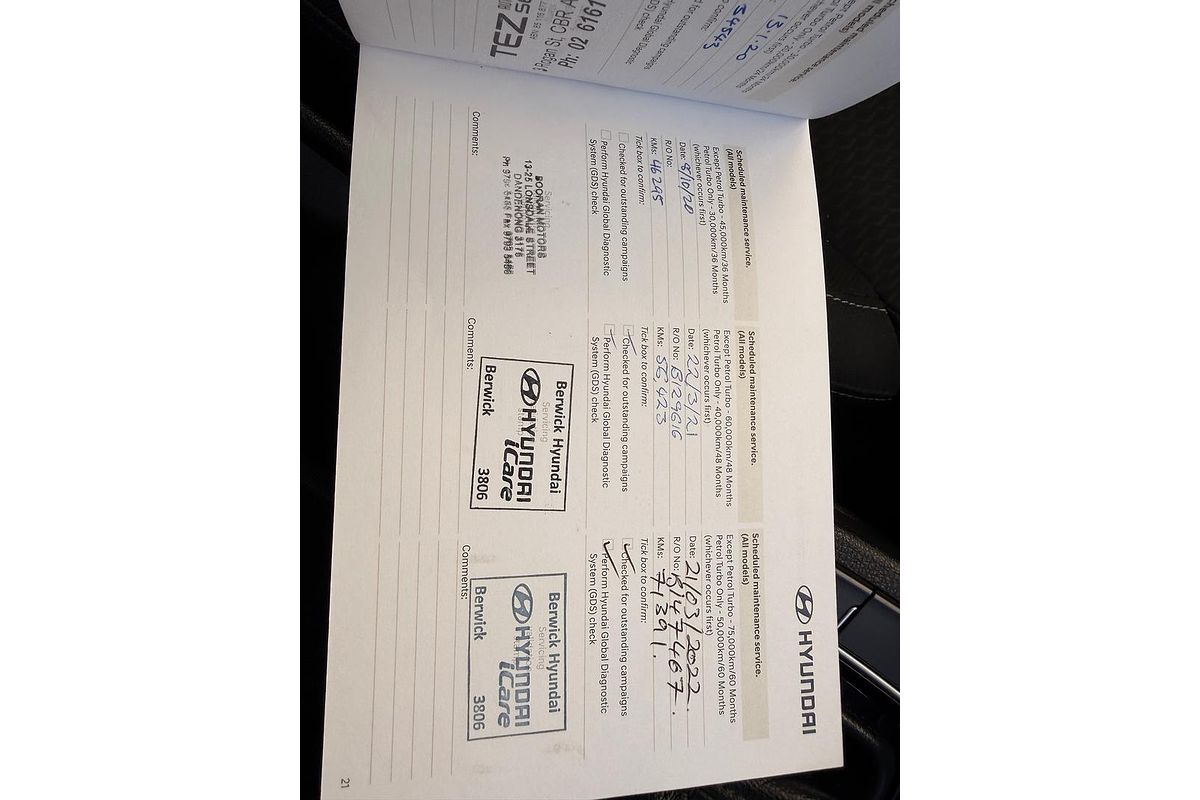 HYUNDAI
Scheduled maintenance service.
(All models)
Except Petrol Turbo - 45,000km/36 Months
Petrol Turbo Only - 30,000km/36 Months
(whichever occurs first)
Date: 8/10/20
R/O No:
KMs: 46295
Tick box to confirm:
Checked for outstanding campaigns
Perform Hyundai Global Diagnostic
System (GDS) check
Servicing
BOORAN MOTORS
13-25 LONSDALE STREET
DANDENONG 3175
Comments:
Scheduled maintenance service.
(All models)
Except Petrol Turbo - 60,000km/48 Months
Petrol Turbo Only - 40,000km/48 Months
(whichever occurs first)
Date: 22/3/21
R/O No: B129616
KMs: 56,423
Tick box to confirm:
Checked for outstanding campaigns
Perform Hyundai Global Diagnostic
System (GDS) check
Berwick Hyundai
Servicing
HYUNDAI
iCare
Berwick 3806
Comments:
Scheduled maintenance service.
(All models)
Except Petrol Turbo - 75,000km/60 Months
Petrol Turbo Only - 50,000km/60 Months
(whichever occurs first)
Date: 21/03/2022.
R/O No: B147467.
KMs: 71391.
Tick box to confirm:
Checked for outstanding campaigns
Perform Hyundai Global Diagnostic
System (GDS) check
Berwick Hyundai
Servicing
HYUNDAI
iCare
Berwick 3806
Comments:
21
scheduled maintenance service.
13.1.20
54543
confirm:
for outstanding campaigns
Hyundai Global Diagnostic
(GDS) check
TEZ
Rogan St, CBR
Ph: 02 6161